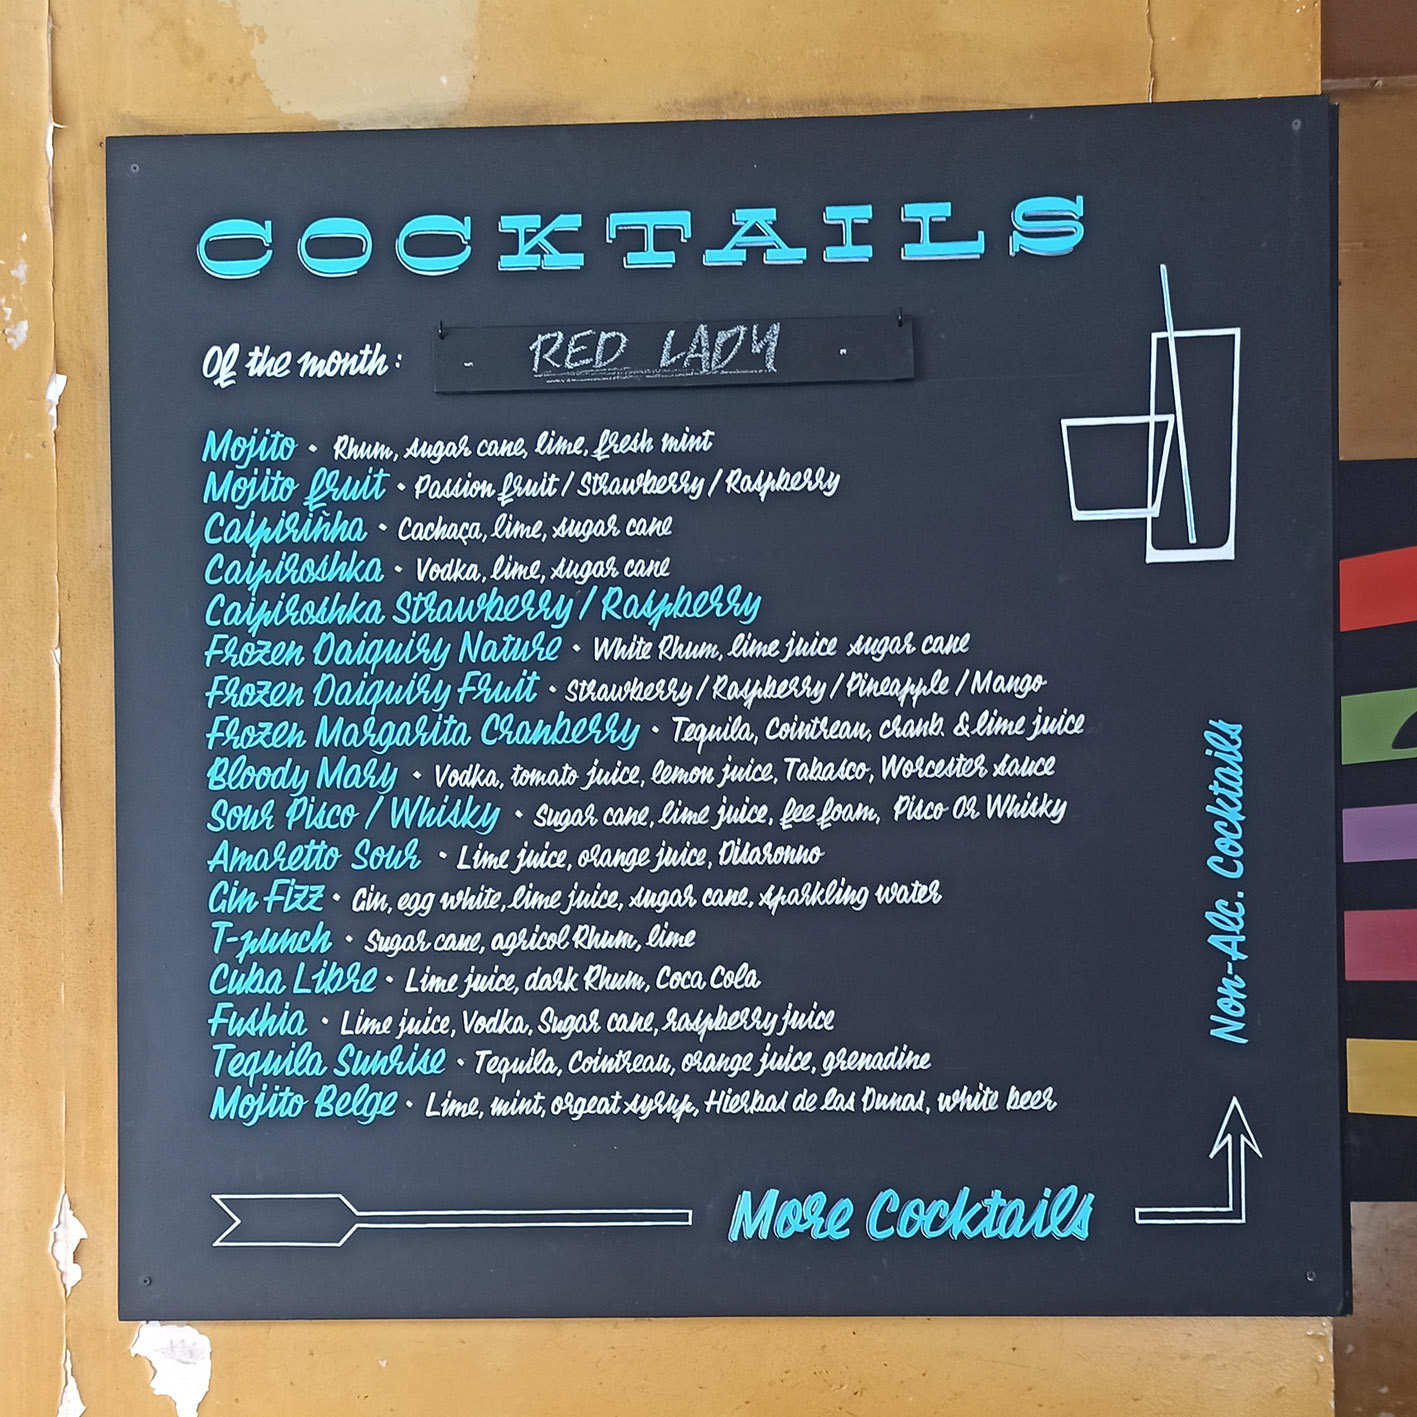 COCKTAILS
Of the month: - RED LADY -
Mojito • Rhum, sugar cane, lime, fresh mint
Mojito fruit • Passion fruit / Strawberry / Raspberry
Caipiriñha • Cachaça, lime, sugar cane
Caïpiroshka • Vodka, lime, sugar cane
Caipiroshka Strawberry / Raspberry
Frozen Daiquiry Nature • White Rhum, lime juice sugar cane
Frozen Daiquiry Fruit • Strawberry / Raspberry / Pineapple / Mango
Frozen Margarita Cranberry • Tequila, Cointreau, cranb. & lime juice
Bloody Mary • Vodka, tomato juice, lemon juice, Tabasco, Worcester sauce
Sour Pisco / Whisky • Sugar cane, lime juice, fee foam, Pisco Or Whisky
Amaretto Sour • Lime juice, orange juice, DiIaronno
Gin Fizz • Gin, egg white, lime juice, sugar cane, sparkling water
T-punch • Sugar cane, agricol Rhum, lime
Cuba Libre • Lime juice, dark Rhum, Coca Cola
Fushia • Lime juice, Vodka, Sugar cane, raspberry juice
Tequila Sunrise • Tequila, Cointreau, orange juice, grenadine
Mojito Belge • Lime, mint, orgeat syrup, Hierbas de las Dunas, white beer
More Cocktails
Non-Alc. Cocktails